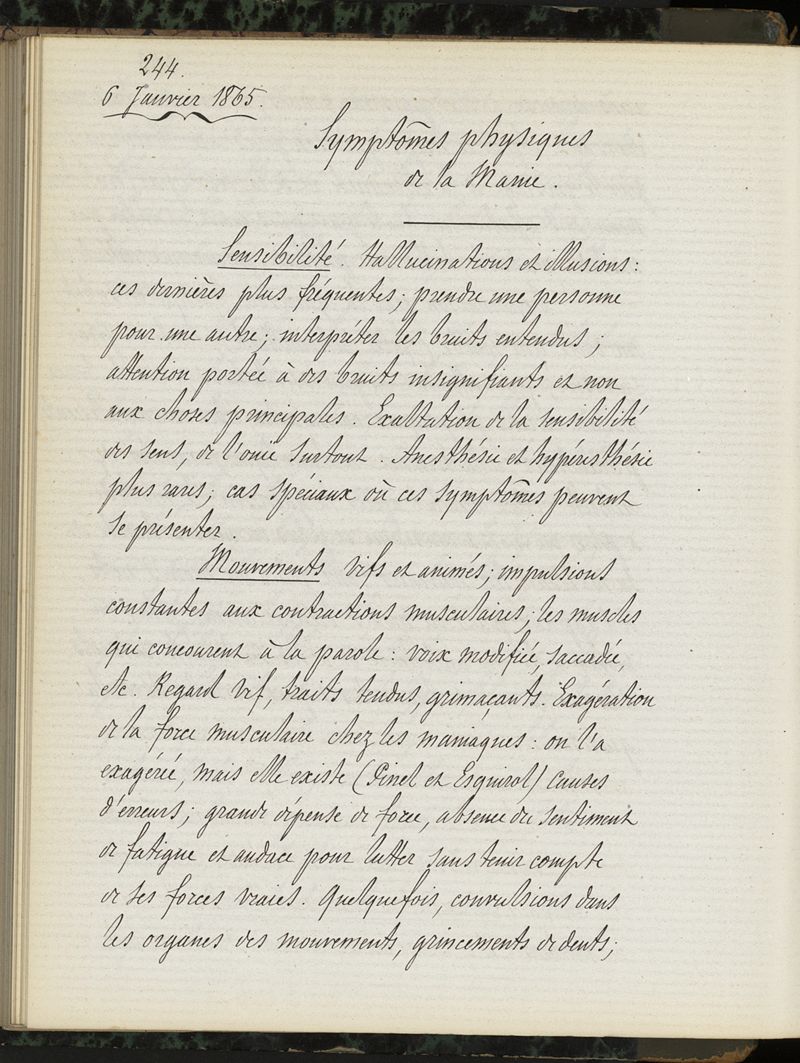 244.
6 Janvier 1865.
Symptômes physiques
de la Manie.
Sensibilité. Hallucinations et illusions :
ces dernières plus fréquentes ; prendre une personne
pour une autre ; interpréter les bruits entendus ;
attention portée à des bruits insignifiants et non
aux choses principales. Exaltation de la sensibilité
des sens, de l'ouïe surtout. Anesthésie et hypéresthésie
plus rares ; cas spéciaux où ces symptômes peuvent
se présenter.
Mouvements vifs et animés ; impulsions
constantes aux contractions musculaires ; les muscles
qui concourent à la parole : voix modifiée, saccadée,
etc. Regard vif, traits tendus, grimaçants. Exagération
de la force musculaire chez les maniaques : on l'a
exagérée, mais elle existe (Pinel et Esquirol) causes
d'erreurs ; grande dépense de force, absence du sentiment
de fatigue et audace pour lutter sans tenir compte
de ses forces vraies. Quelquefois, convulsions dans
les organes des mouvements, grincements de dents ;